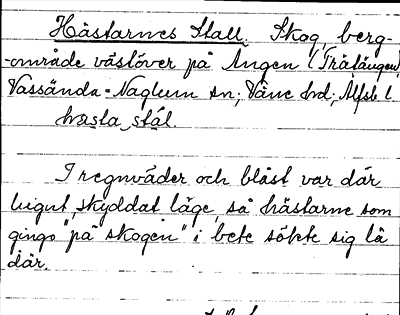 Hästarnes Stall. Skog, berg-
-område väster på Ängen (Trätängen)
Vassända-Naglum sn; Väne hd; Älfsb l.
hasta stal
I regnväder och blåst var där
lugnt, skyddat läge, så hästarne som
gingo "på skogen" i bete sökte sig lä
där.